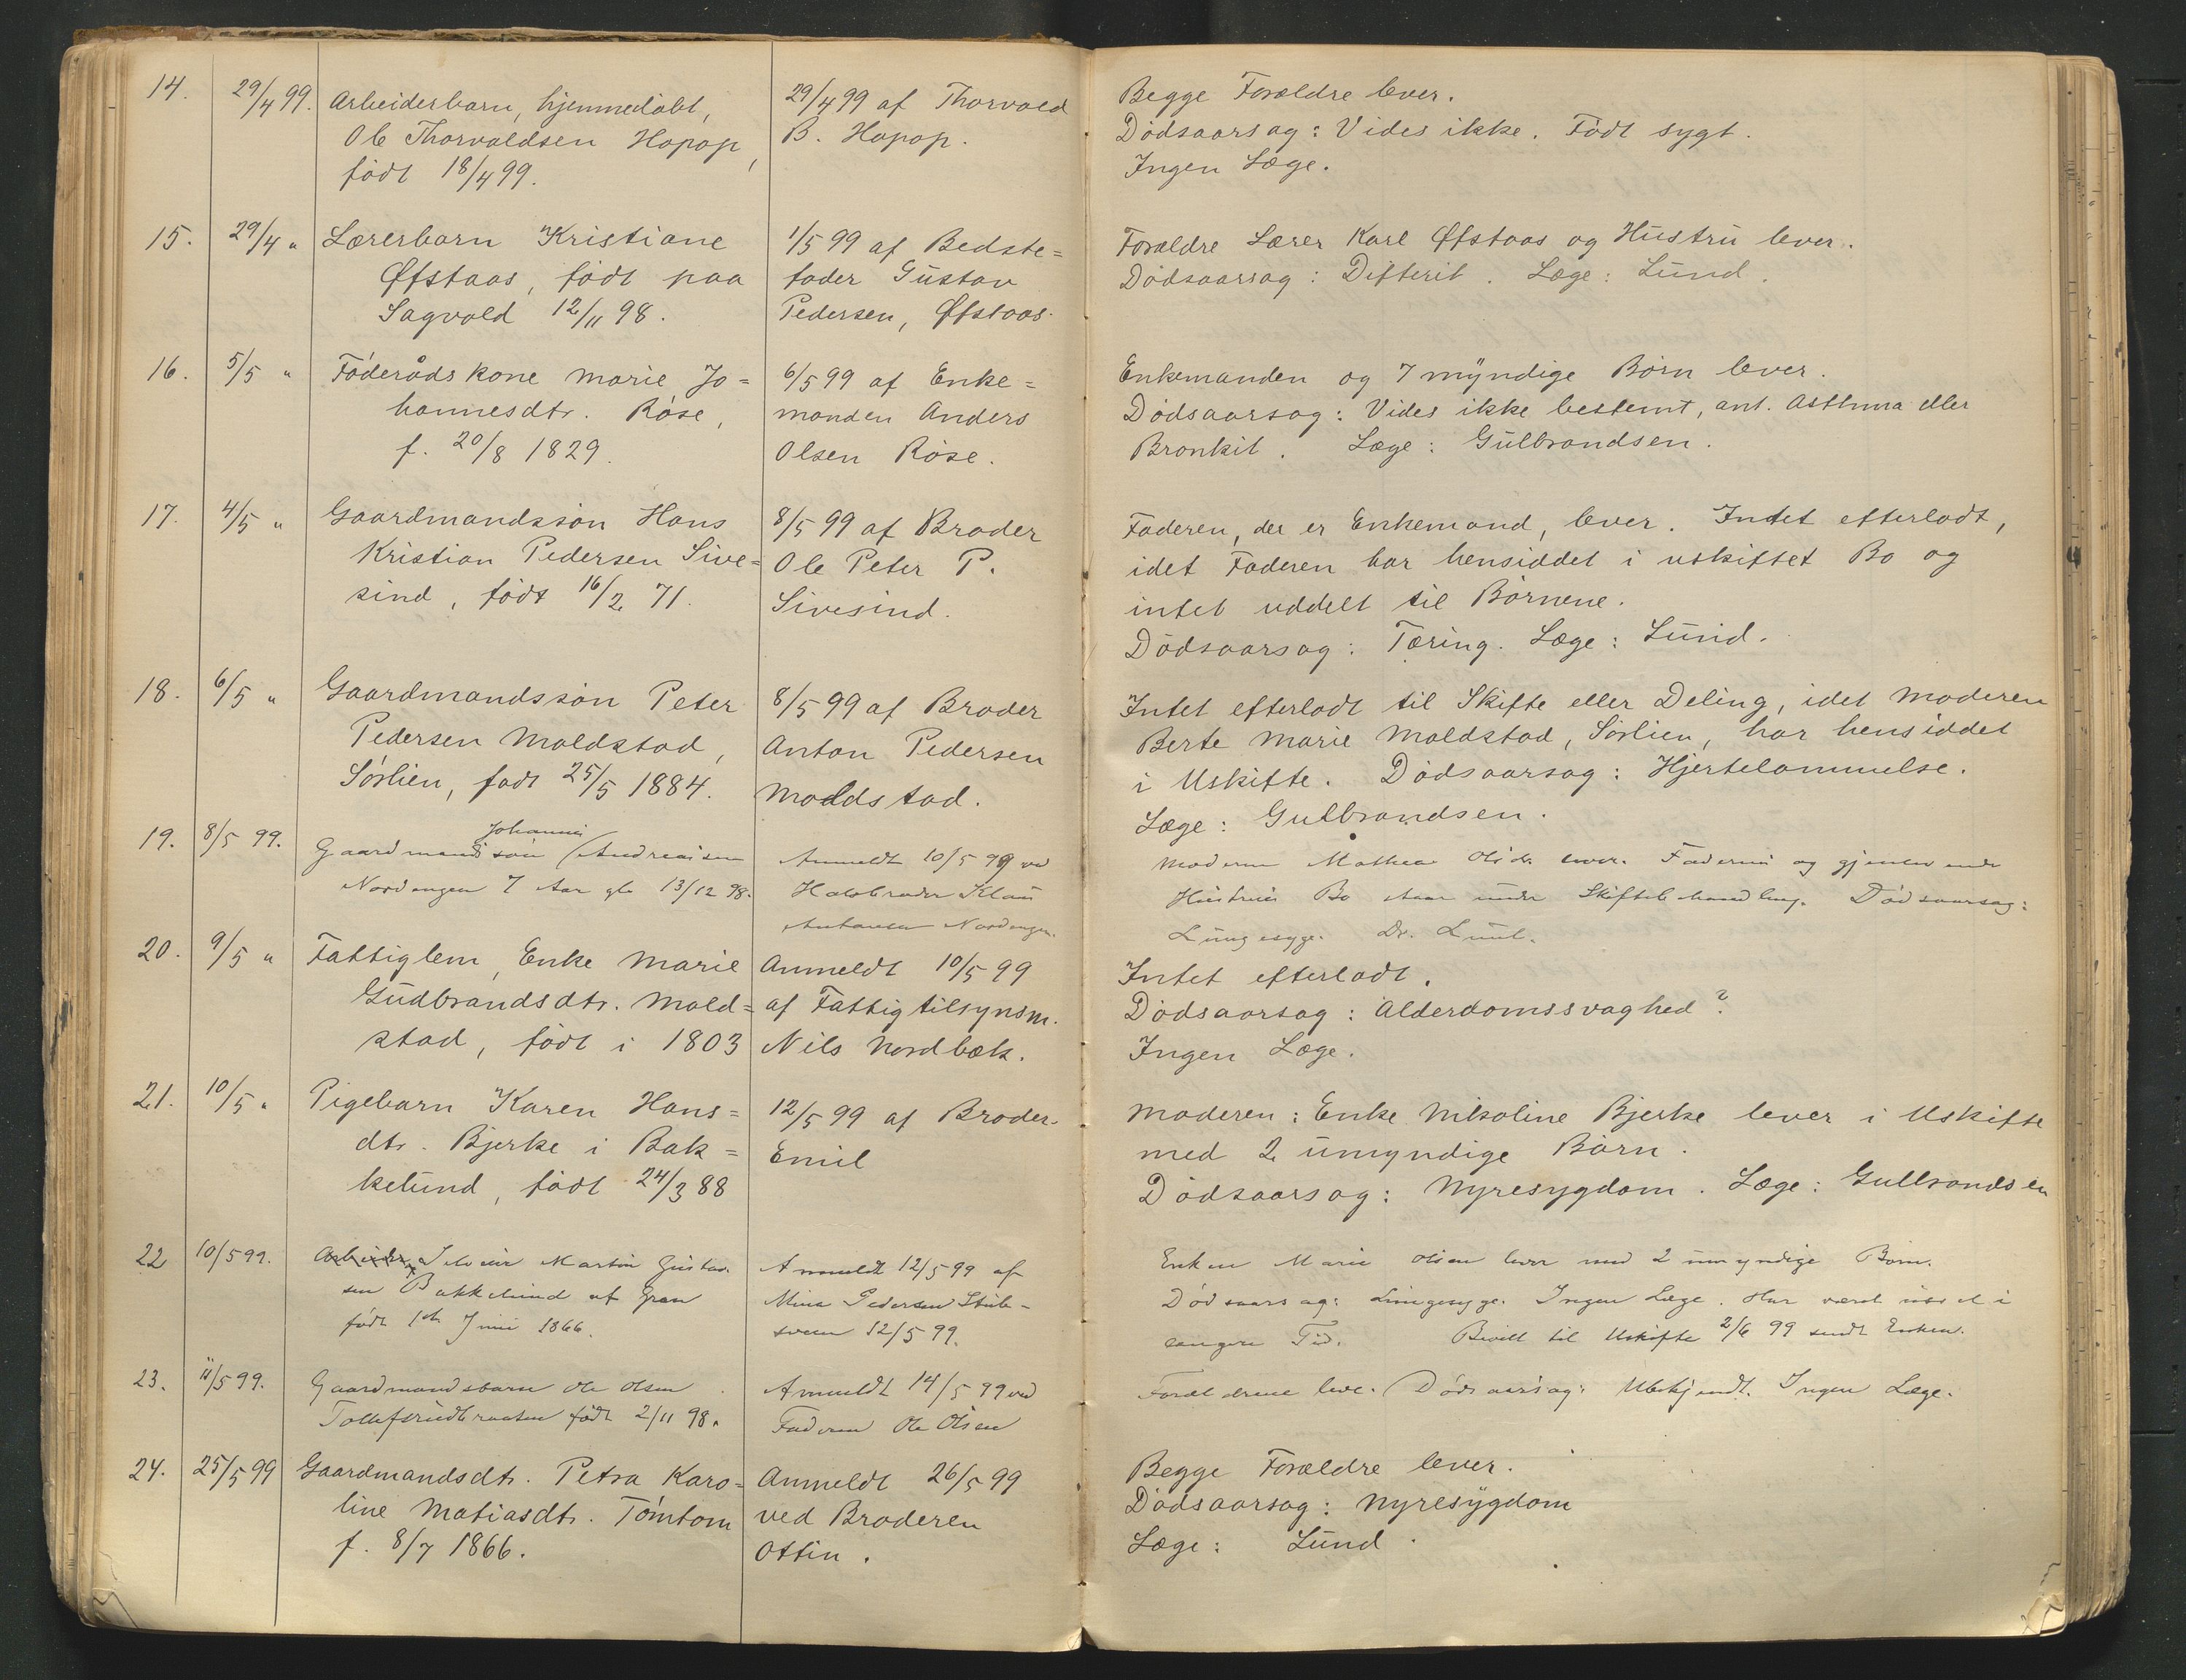 14.
29/4 99.
Arbeiderbarn, hjemmedöbt,
Ole Thorvaldsen Hapop,
födt 18/4 99.
29/4 99 af Thorvald
B. Hapop.
Begge Forældre lever.
Dödsaarsag: Vides ikke. Födt sygt.
Ingen Læge.
15.
29/4 "
Lærerbarn Kristiane
Øfstaas, födt paa
Sagvold 12/11 98.
1/5 99 af Bedste=
fader Gustav
Pedersen, Øfstaas.
Forældre Lærer Karl Øfstaas og Hustru lever.
Dödsaarsag: Difterit. Læge: Lund.
16.
5/5 "
Föderåds kone Marie Jo=
hannesdtr. Röse,
f. 20/8 1829.
6/5 99 af Enke=
manden Anders
Olsen Röse.
Enkemanden og 7 myndige Börn lever.
Dödsaarsag: Vides ikke bestemt, ant. Asthma eller
Bronkit. Læge: Gulbrandsen.
17.
4/5 "
Gaardmandssön Hans
Kristian Pedersen Sive=
sind, födt 16/2 71.
8/5 99 af Broder
Ole Peter P.
Sivesind.
Faderen, der er Enkemand, lever. Intet efterladt,
idet Faderen har hensiddet i uskiftet Bo og
intet uddelt til Börnene.
Dödsaarsag: Tæring. Læge: Lund.
18.
6/5 "
Gaardmandssön Peter
Pedersen Moldstad,
Sörlien, födt 25/5 1884.
8/5 99 af Broder
Anton Pedersen
Moldstad.
Intet efterladt til Skifte eller Deling, idet Moderen
Berte Marie Moldstad, Sörlien, har hensiddet
i Uskifte. Dödsaarsag: Hjertelammelse.
Læge: Gulbrandsen.
19.
8/5 99.
Johannes
Gaardmandssön Andreassen
Nordengen 7 Aar gl. 13/12 98.
Anmeldt 10/5 99 ved
Halvbroder Klaus
Nordengen.
Moderen Mathea Olsdtr. lever. Faderens og gjenlevende
Hustrus Bo staar under Skiftebehandling. Dödsaarsag:
Lungesyge. Dr. Lund.
20.
9/5 "
Fattiglem, Enke Marie
Gudbrandsdtr. Mold=
stad, födt i 1803
Anmeldt 10/5 99
af Fattigtilsynsm.
Nils Nordbæk.
Intet efterladt.
Dödsaarsag: Alderdomssvaghed?
Ingen Læge.
21.
10/5 "
Pigebarn Karen Hans=
dtr. Bjerke i Bak=
kelund, födt 24/3 88
12/5 99 af Broder
Emil
Moderen: Enke Nikoline Bjerke lever i Uskifte
med 2 umyndige Börn.
Dödsaarsag: Nyresygdom. Læge: Gulbrandsen
22
10/5 99.
Arbeider Martin Gustav
sen Bakkelund af Gran
födt 1ste Juni 1866.
Anmeldt 12/5 99 af
Mina Pedersen Stub-
sveen 12/5 99.
Enken Marie Olsen lever med 2 umyndige Börn.
Dödsaarsag: Lungesyge. Ingen Læge. Har været i
længere Tid. Bevill. til Uskifte 2/6 99 sendt Enken.
23.
11/5 99.
Gaardmandsbarn Ole Olsen
Tollefsrudbraaten födt 2/11 98.
Anmeldt 14/5 99 ved
Faderen Ole Olsen
Forældrene lever. Dödsaarsag: Ubekjendt. Ingen Læge.
24.
25/5 99
Gaardmandsdtr. Petra Karo=
line Matiasdtr. Tömtom
f. 8/7 1866.
Anmeldt 26/5 99
ved Broderen
Ottin.
Begge Forældre lever.
Dödsaarsag: Nyresygdom
Læge: Lund.